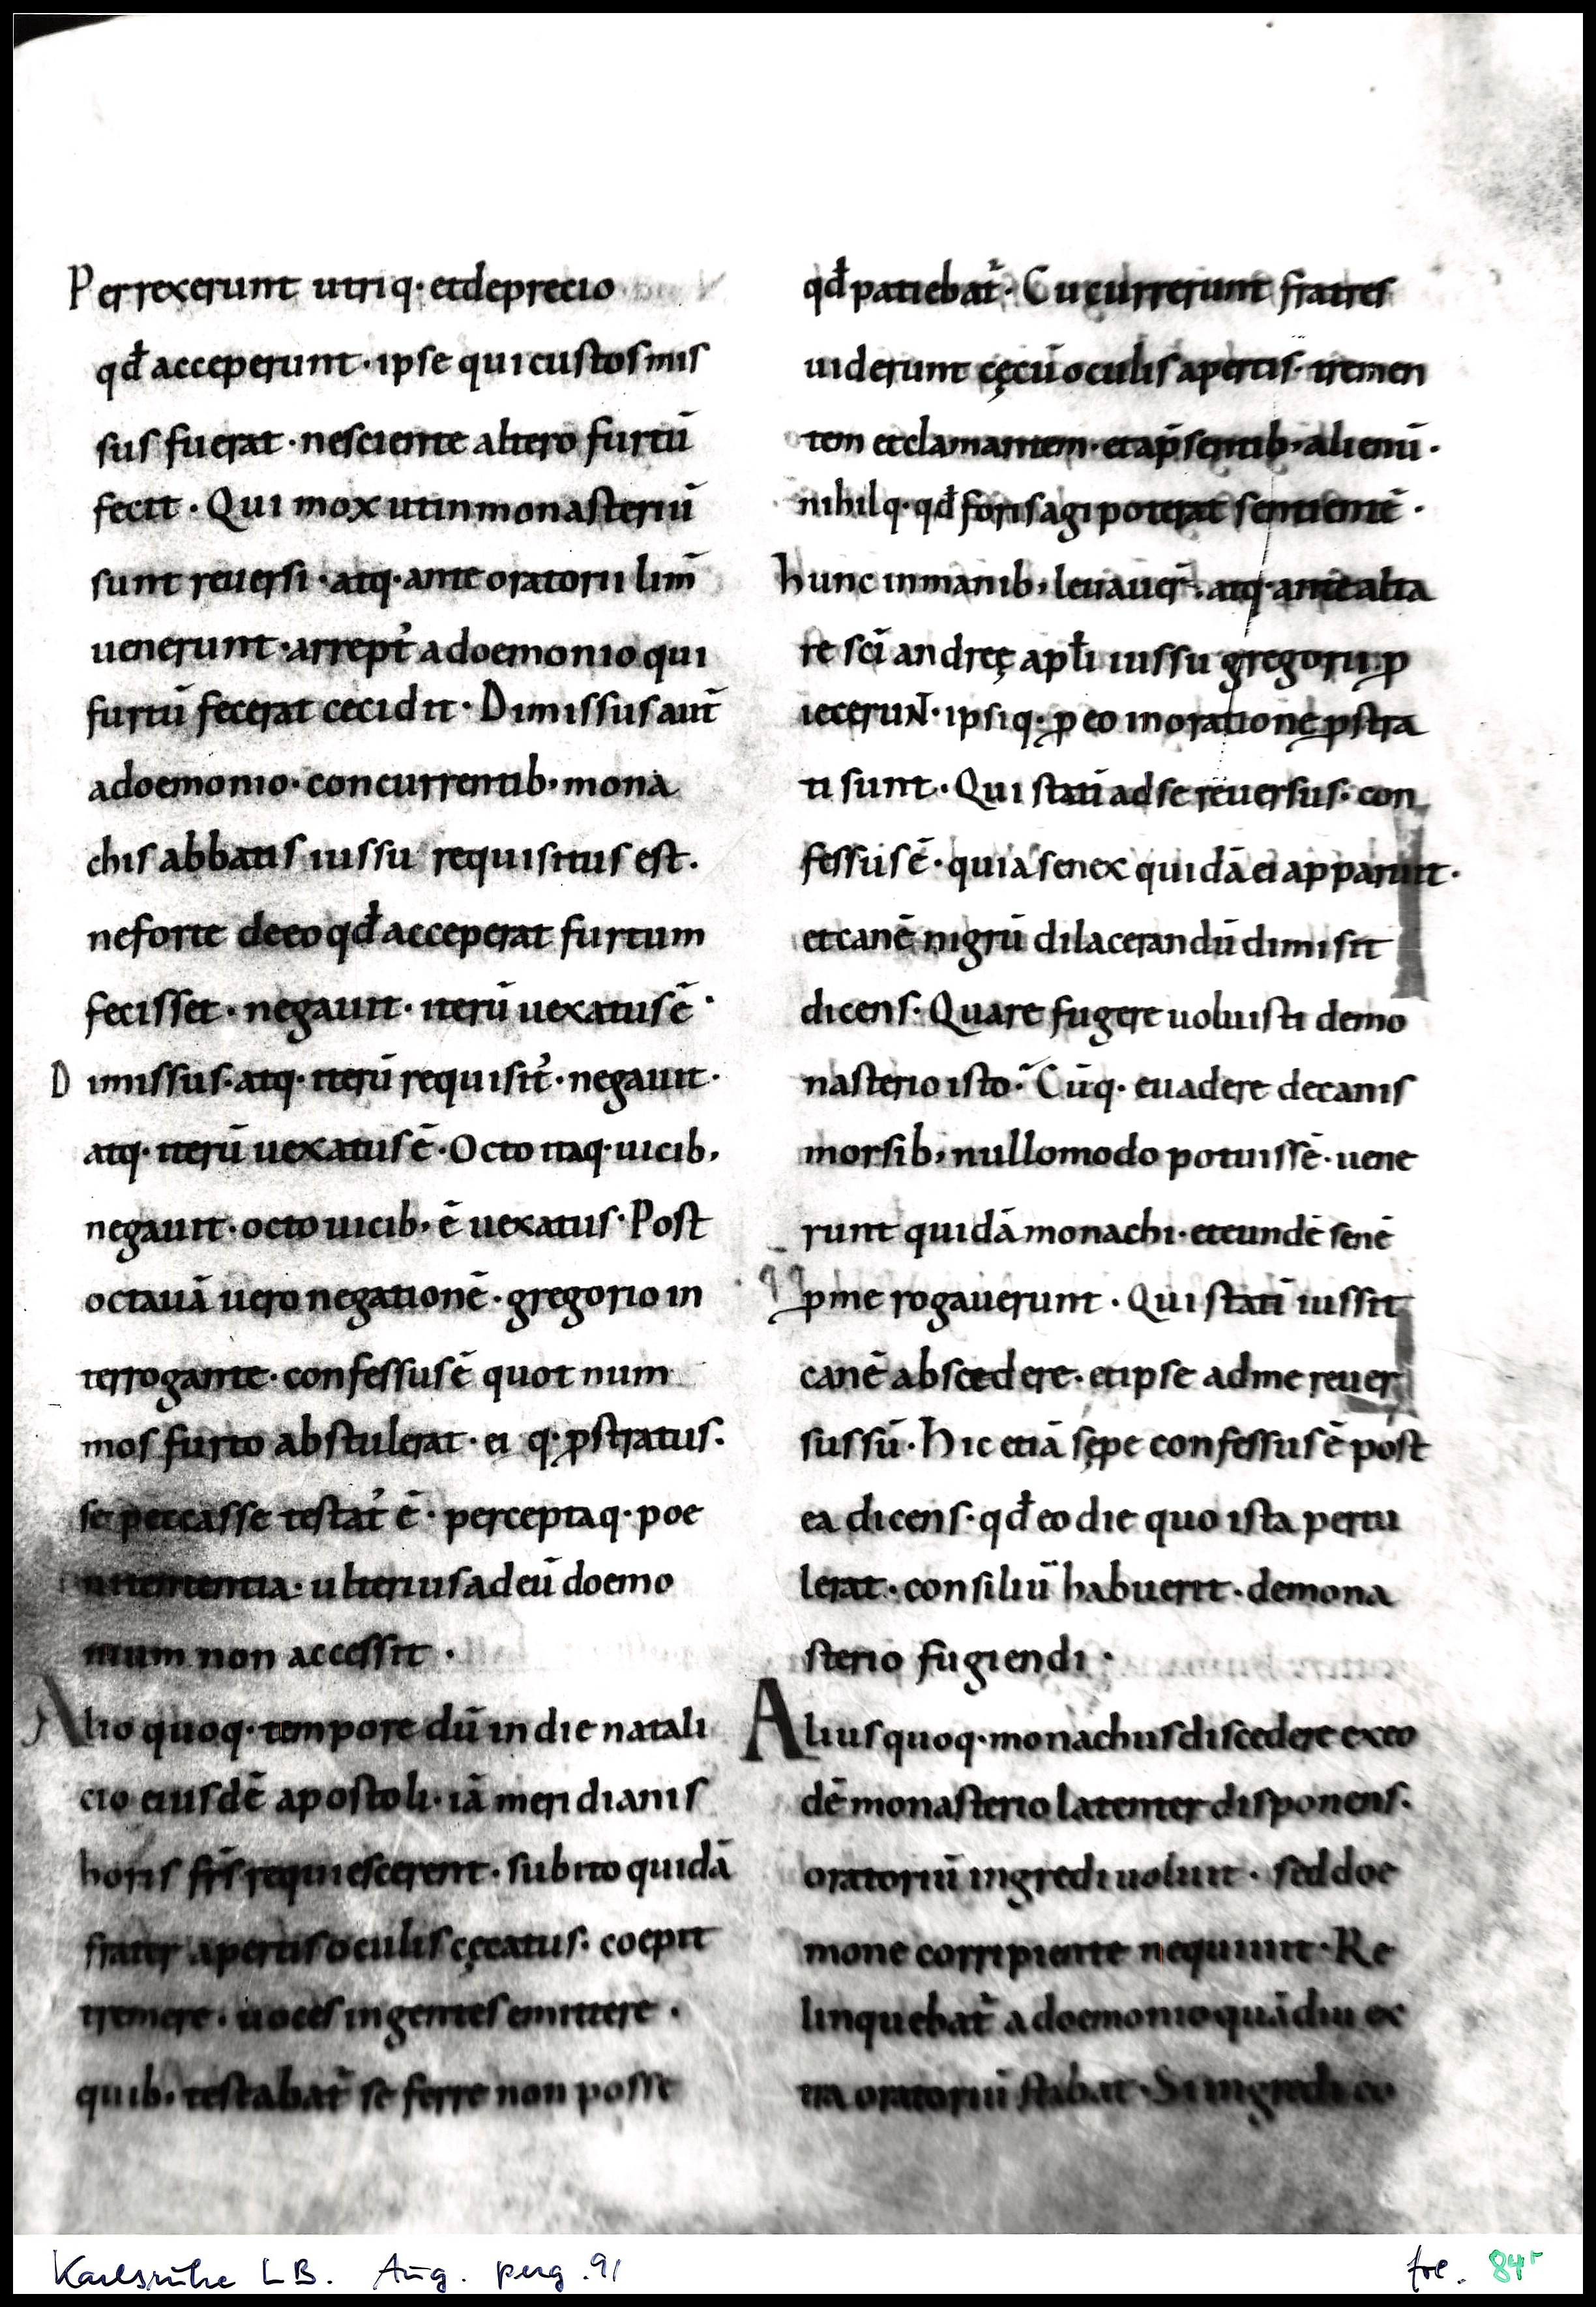 Perrexerunt utriq· et de precio
qđ acceperunt · ipse qui custos mis
sus fuerat · nesciente altero furtū
fecit · Qui mox ut in monasteriū
sunt reuersi · atq· ante oratorii lim̄
uenerunt · arrept᾽ a doemonio qui
furtū fecerat cecidit · Dimissus aut̄
a doemonio · concurrentib· mona
chis abbatis iussu requisitus est ·
ne forte de eo qđ acceperat furtum
fecisset · negauit · iterū uexatus ē ·
Dimissus · atq· iterū requisit᾽ · negauit ·
atq· iterū uexatus ē · Octo itaq· uicib·
negauit · octo uicib· ē uexatus · Post
octauā uero negationē · gregorio in
terrogante · confessus ē quot num
mos furto abstulerat · ei q· ꝓstratus ·
se peccasse testat᾽ ē · perceptaq· poe
nitentia · ulterius ad eū doemo
nium non accessit ·
Alio quoq· tempore dū in die natali
cio eiusdē apostoli · iā meridianis
horis frs̄ requiescerent · subito quidā
frater apertis oculis cęcatus · coepit
tremere · uoces ingentes emittere ·
quib· testabat᾽ se ferre non posse
qđ patiebat᾽ · Cucurrerunt fratres
uiderunt cęcū oculis apertis · tremen
tem et clamantem · et a p̄sentib· alienū ·
nihilq· qđ foris agi poterat sentientē ·
hunc in manib· leuauer̄ · atq· ante alta
re sc̄i andreę apłi iussu gregorii ꝓ
iecerunt · ipsiq· ꝓ eo in oratione ꝓstra
ti sunt · Qui statī ad se reuersus · con
fessus ē · quia senex quidā ei apparuit ·
et canē nigrū dilacerandū dimisit
dicens · Quare fugere uoluisti de mo
nasterio isto · Cūq· euadere de canis
morsib· nullomodo potuissē · uene
runt quidā monachi · et eundē senē
ꝓ me rogauerunt · Qui statī iussit
canē abscedere · et ipse ad me reuer
sus sū · Hic etiā sępe confessus ē post
ea dicens · qđ eo die quo ista pertu
lerat · consiliū habuerit · de mona
sterio fugiendi ·
Alius quoq· monachus discedere ex eo
dē monasterio latenter disponens ·
oratoriū ingredi uoluit · sed doe
mone corripiente nequiuit · Re
linquebat᾽ a doemonio quādiu ex
tra oratoriū stabat · Si ingredi co
Karlsruhe LB. Aug. perg. 91
fol. 84r